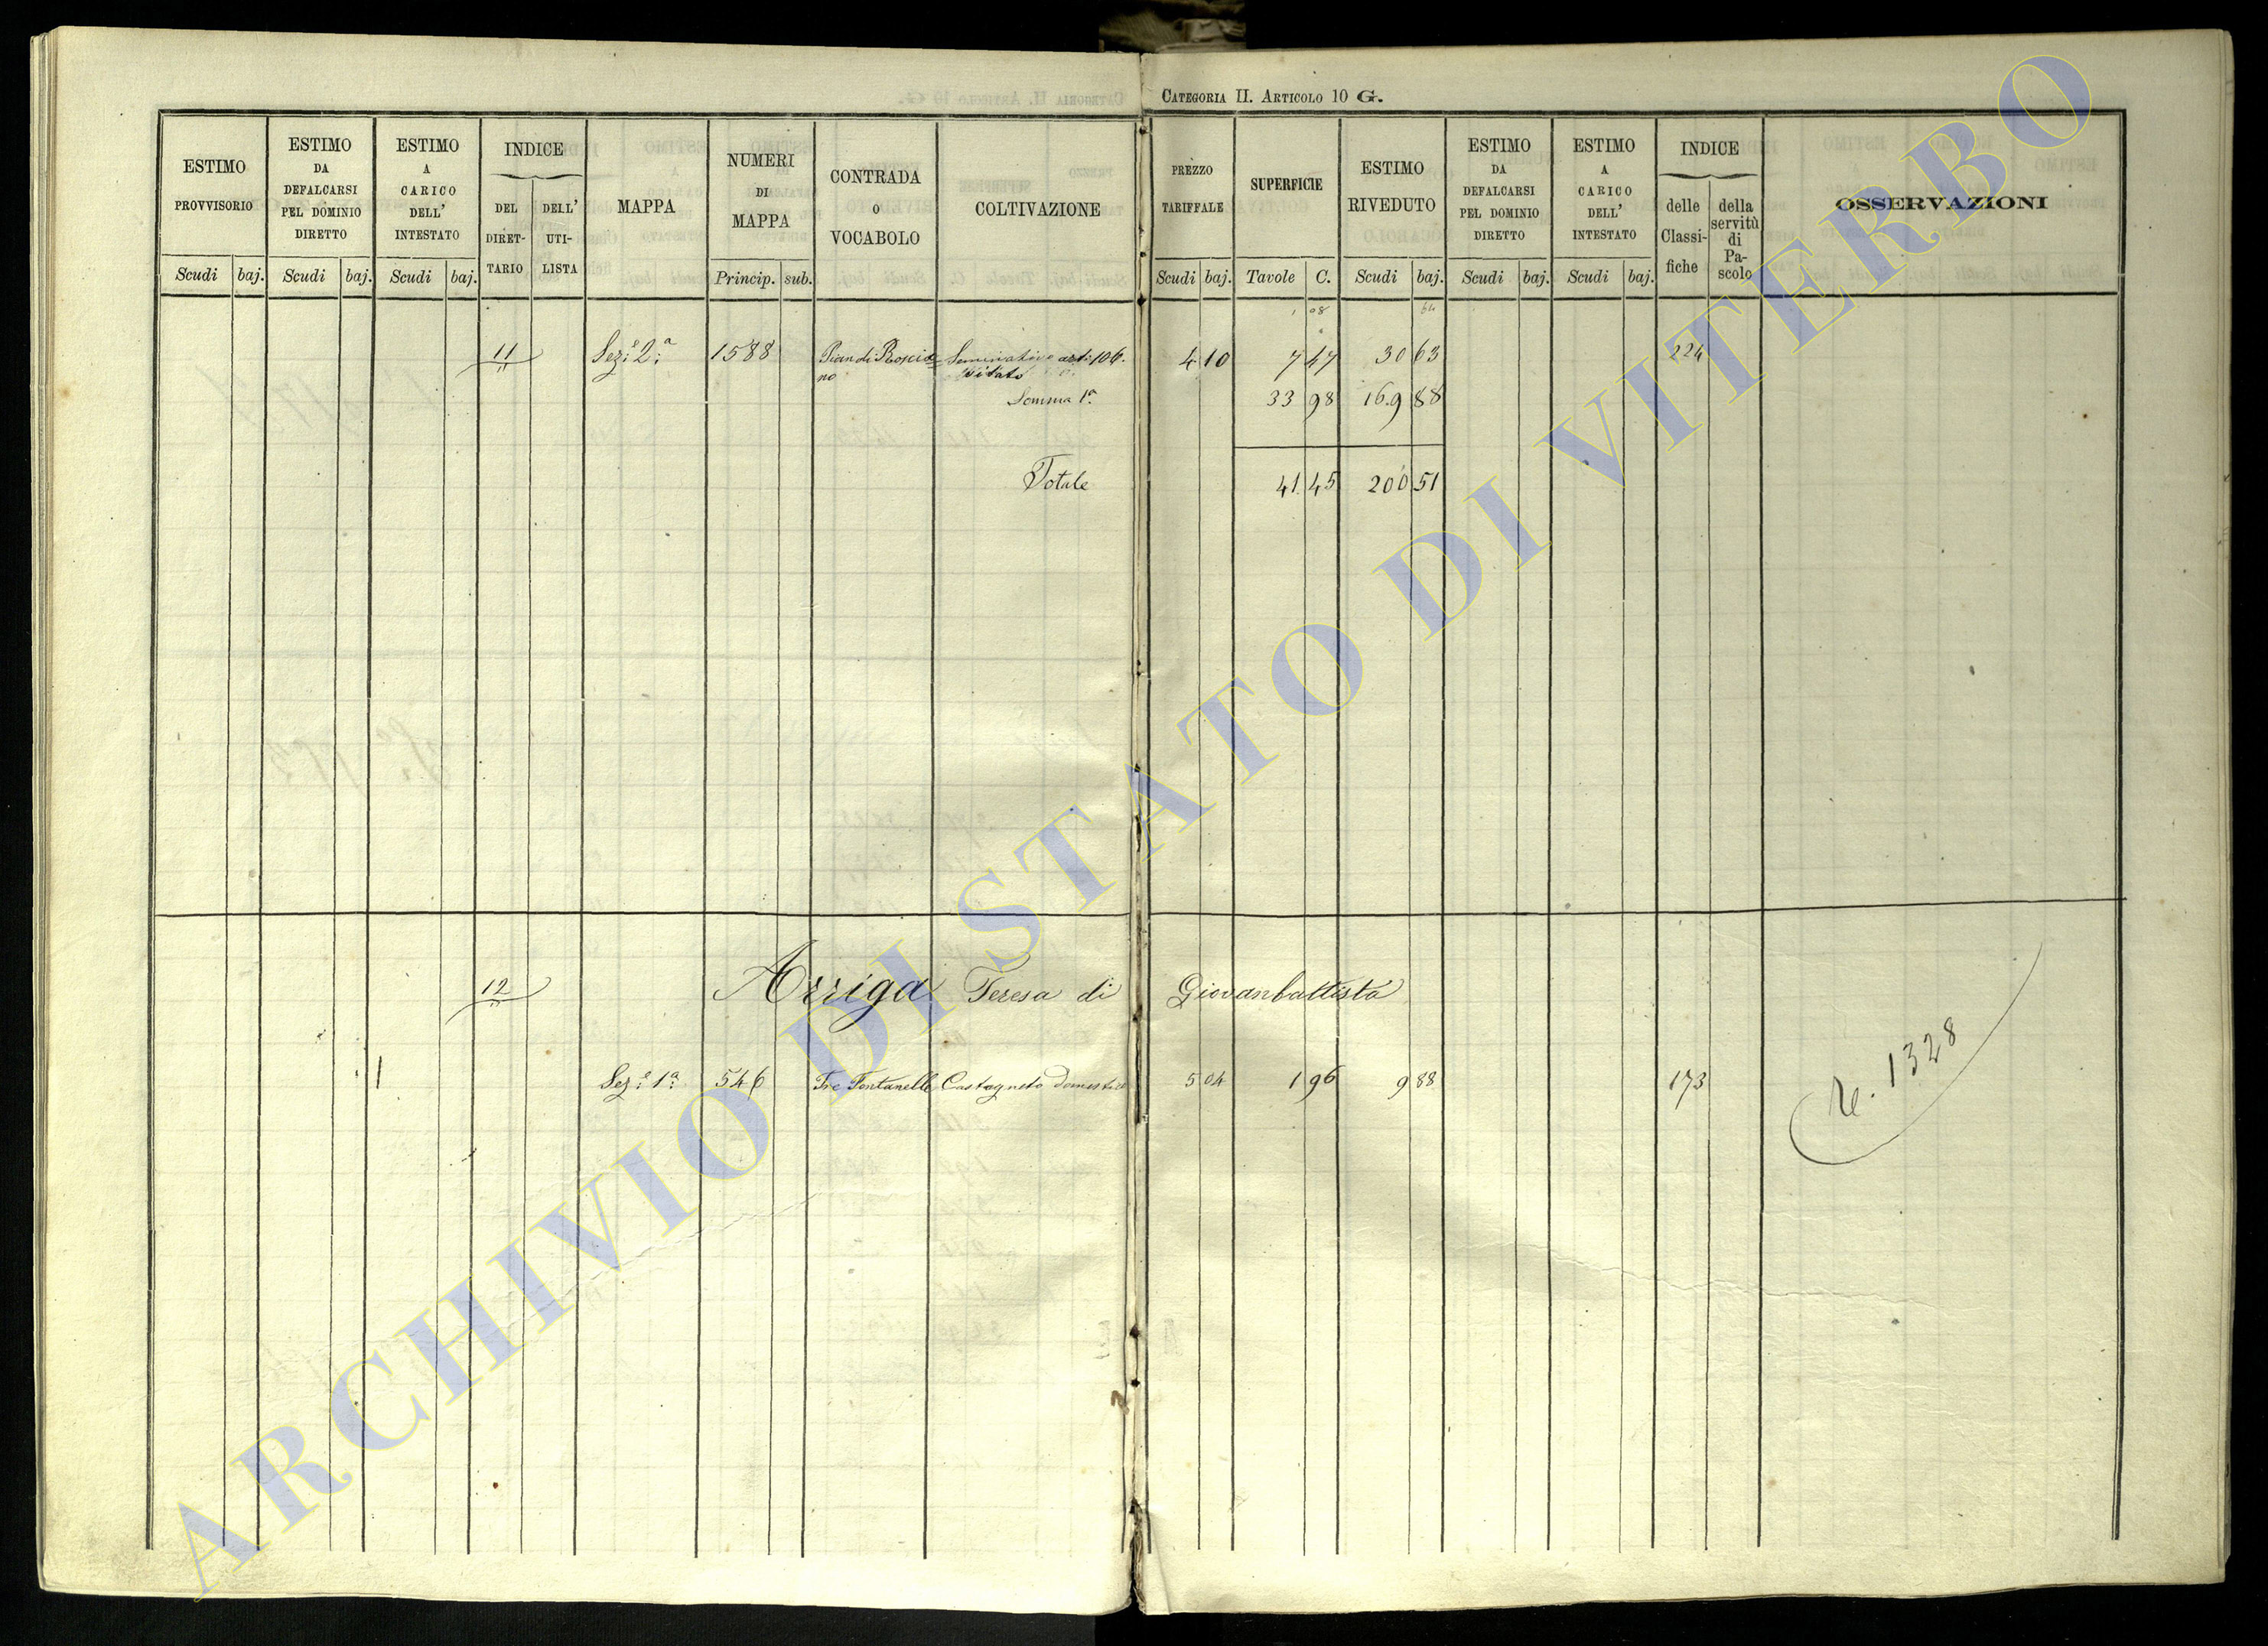 CATEGORIA II. ARTICOLO 10 G.
ESTIMO PROVVISORIO Scudi baj.
ESTIMO DA DEFALCARSI PEL DOMINIO DIRETTO Scudi baj.
ESTIMO A CARICO DELL' INTESTATO Scudi baj.
INDICE DEL DIRET-TARIO DELL' UTI-LISTA
MAPPA
NUMERI DI MAPPA Princip. sub.
CONTRADA O VOCABOLO
COLTIVAZIONE
PREZZO TARIFFALE Scudi baj.
SUPERFICIE Tavole C.
ESTIMO RIVEDUTO Scudi baj.
ESTIMO DA DEFALCARSI PEL DOMINIO DIRETTO Scudi baj.
ESTIMO A CARICO DELL' INTESTATO Scudi baj.
INDICE delle Classi-fiche della servitù di Pa-scolo
OSSERVAZIONI
11 Sez.e 2.a 1588 Pian di Roscia= Seminativo art: 106. 4 10 7 47 30 63 224
no vitato
Somma 1a 33 98 16.9 88
Totale 41 45 200 51
12 Arriga Teresa di Giovanbattista
1 Sez.e 1a 546 Tre Fontanelle Castagneto domestico 5 04 1 96 9 88 173
1328
ARCHIVIO DI STATO DI VITERBO